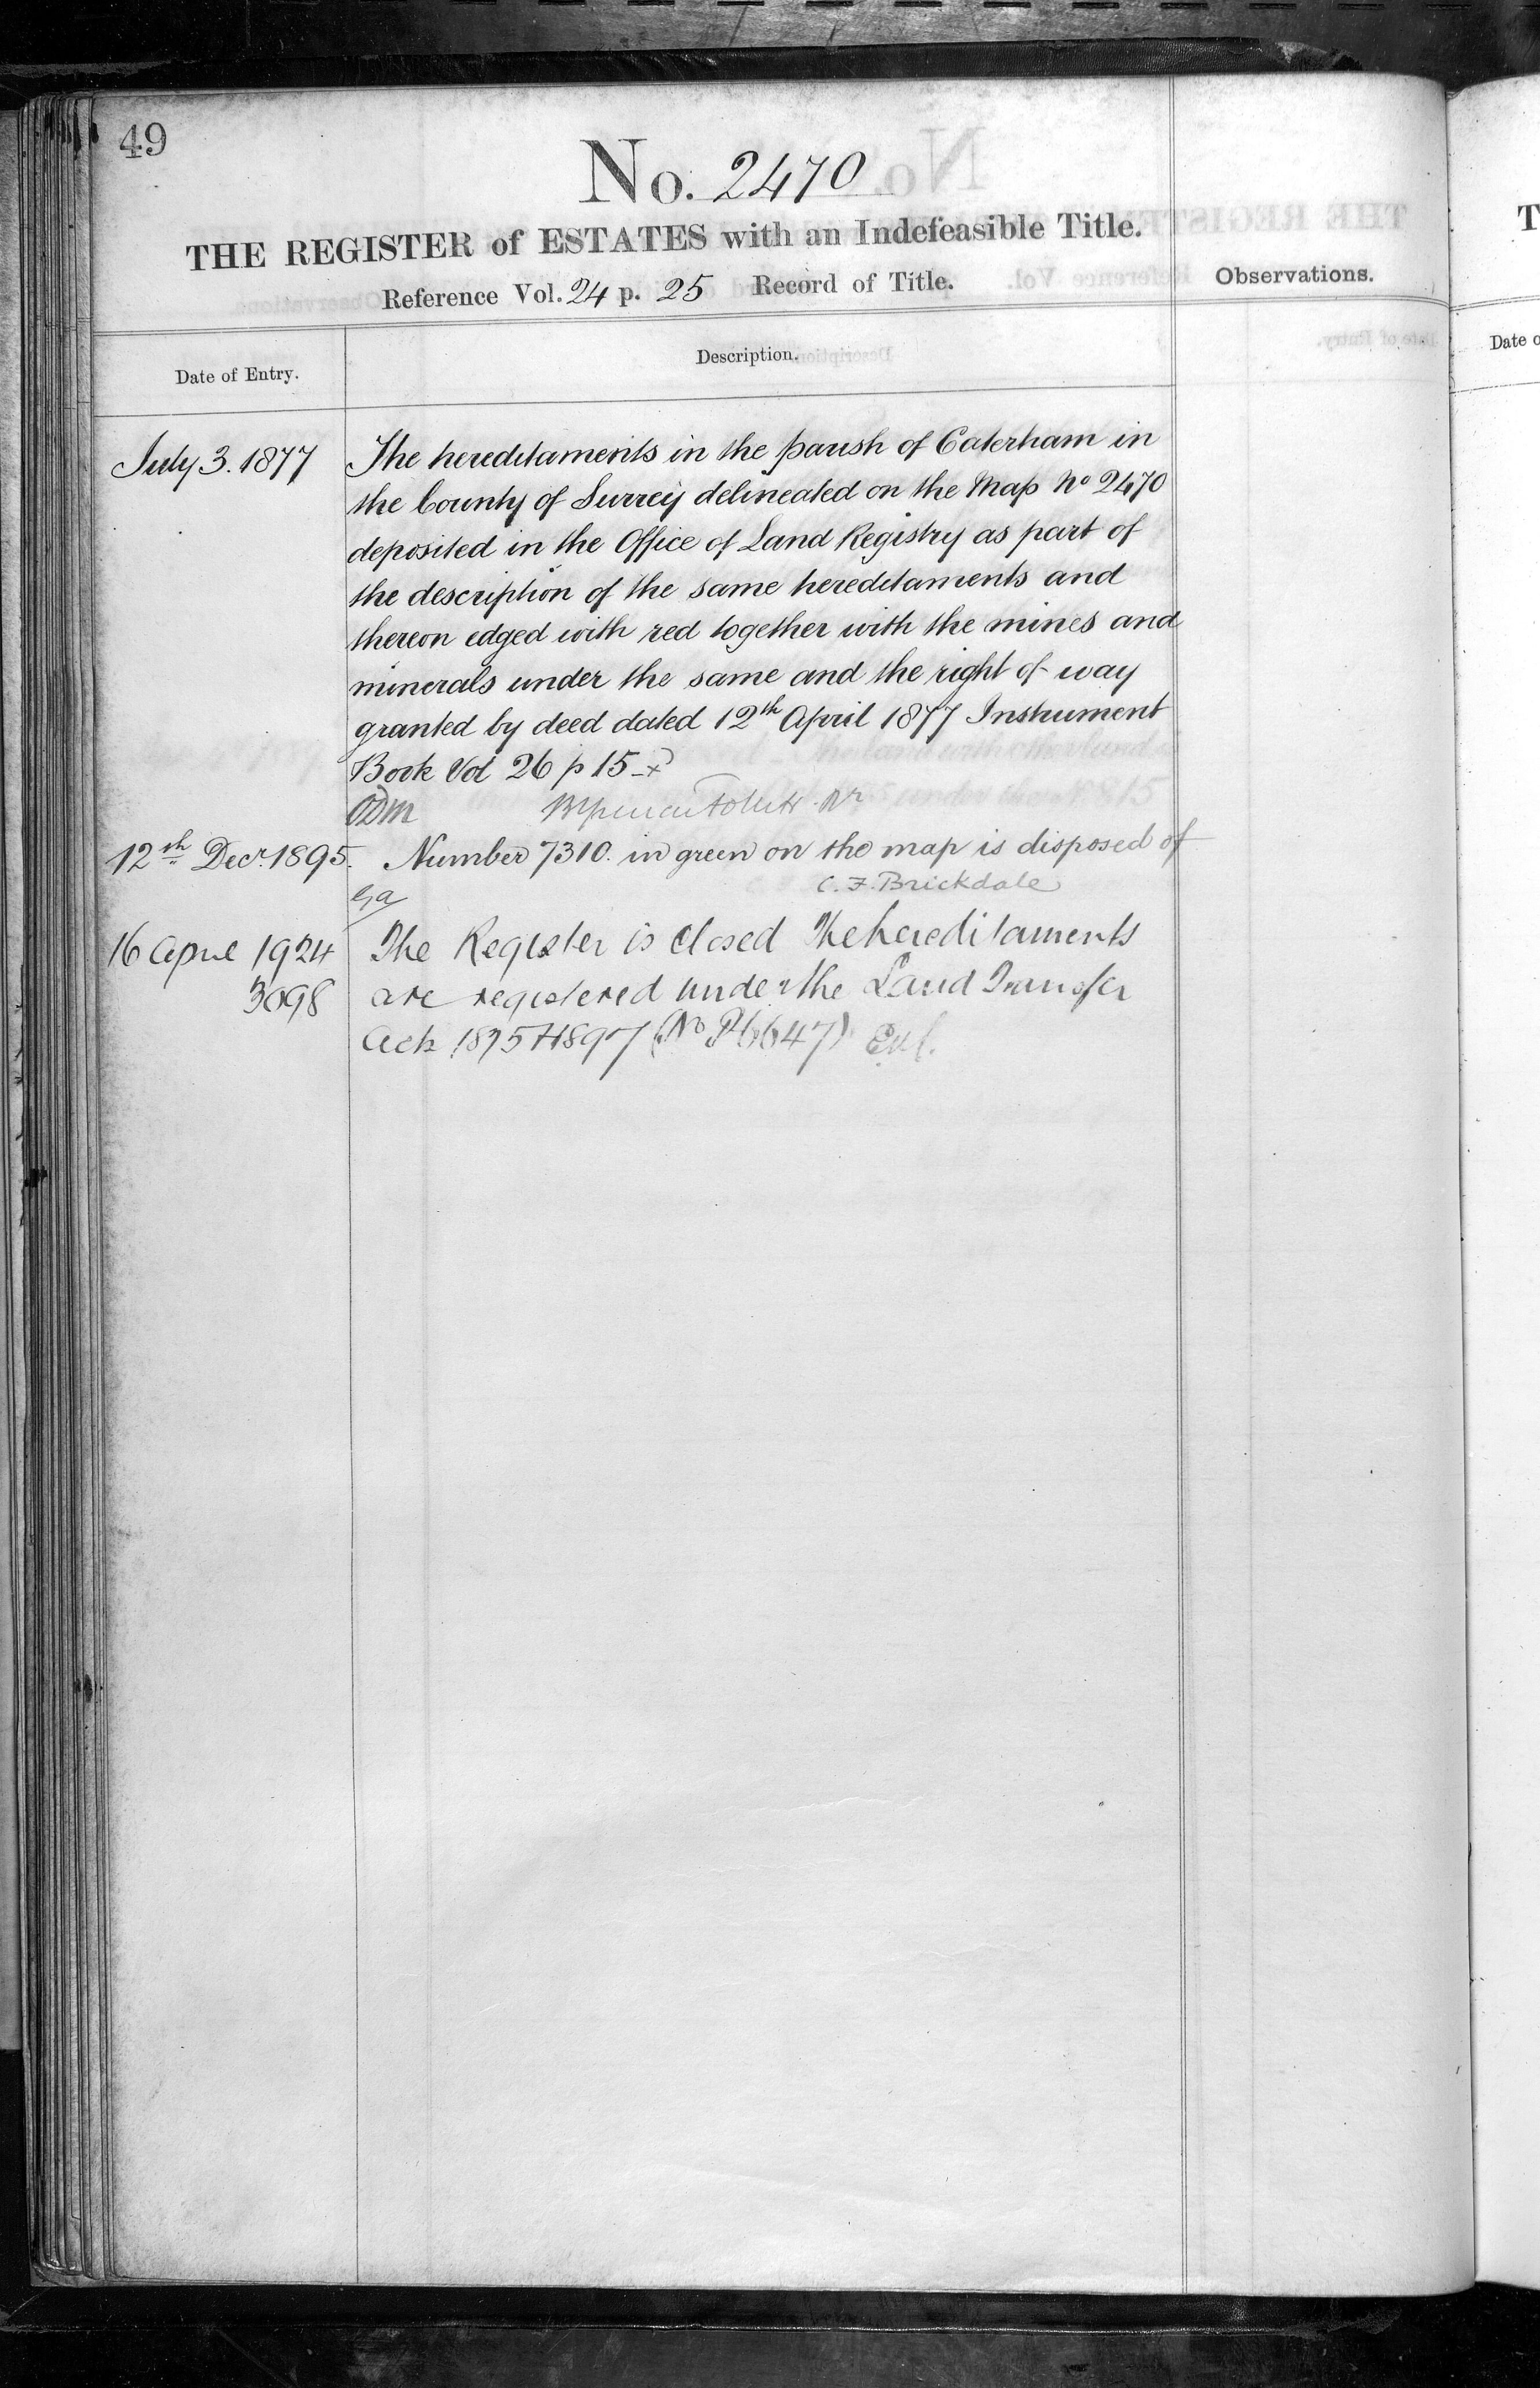 49
No. 2470
THE REGISTER of ESTATES with an Indefeasible Title.
Reference Vol. 24 p. 25 Record of Title.
Observations.
Date of Entry.
Description.
July 3. 1877 The hereditaments in the parish of Caterham in
the County of Surrey delineated on the Map No 2470
deposited in the Office of Land Registry as part of
the description of the same hereditaments and
thereon edged with red together with the mines and
minerals under the same and the right of way
granted by deed dated 12th April 1877 Instrument
Book Vol 26 p 15
12th Decr. 1895. Number 7310. in green on the map is disposed of
C. F. Brickdale
16 April 1924 The Register is closed The hereditaments
3098 are registered under the Land Transfer
Acts 1875 & 1897 (No P6647)